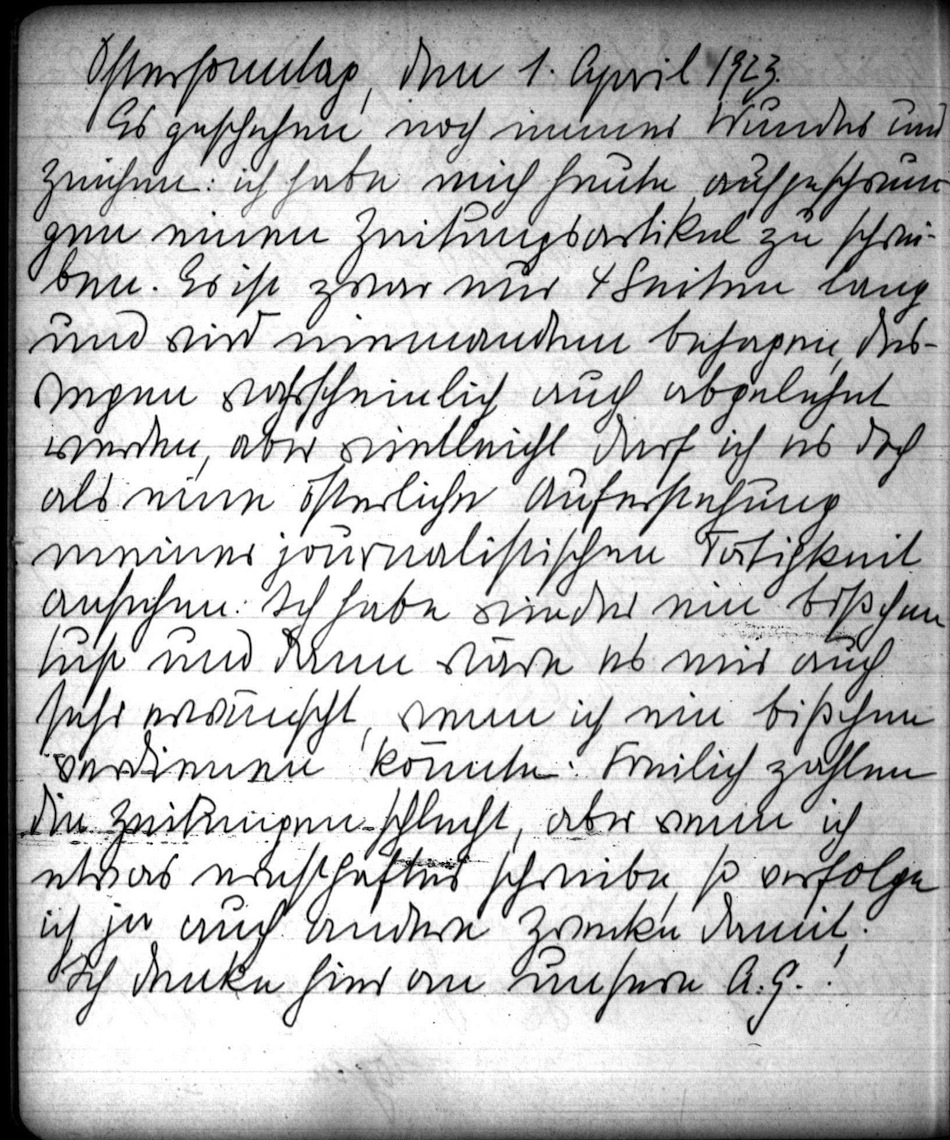 Ostersonntag, den 1. April 1923.
Es geschehen noch immer Wunder und
Zeichen: ich habe mich heute aufgeschwun-
gen einen Zeitungsartikel zu schrei-
ben. Er ist zwar nur 4 Seiten lang
und wird niemandem behagen, des-
wegen wahrscheinlich auch abgelehnt
werden, aber vielleicht darf ich es doch
als eine österliche Auferstehung
meiner journalistischen Tätigkeit
ansehen. Ich habe wieder ein bißchen
Lust und dann wäre es mir auch
sehr erwünscht, wenn ich ein bißchen
verdienen könnte. Freilich zahlen
die Zeitungen schlecht, aber wenn ich
etwas ernsthaftes schreibe, so verfolge
ich ja auch andere Zwecke damit.
Ich denke hier an unsere A.G.!